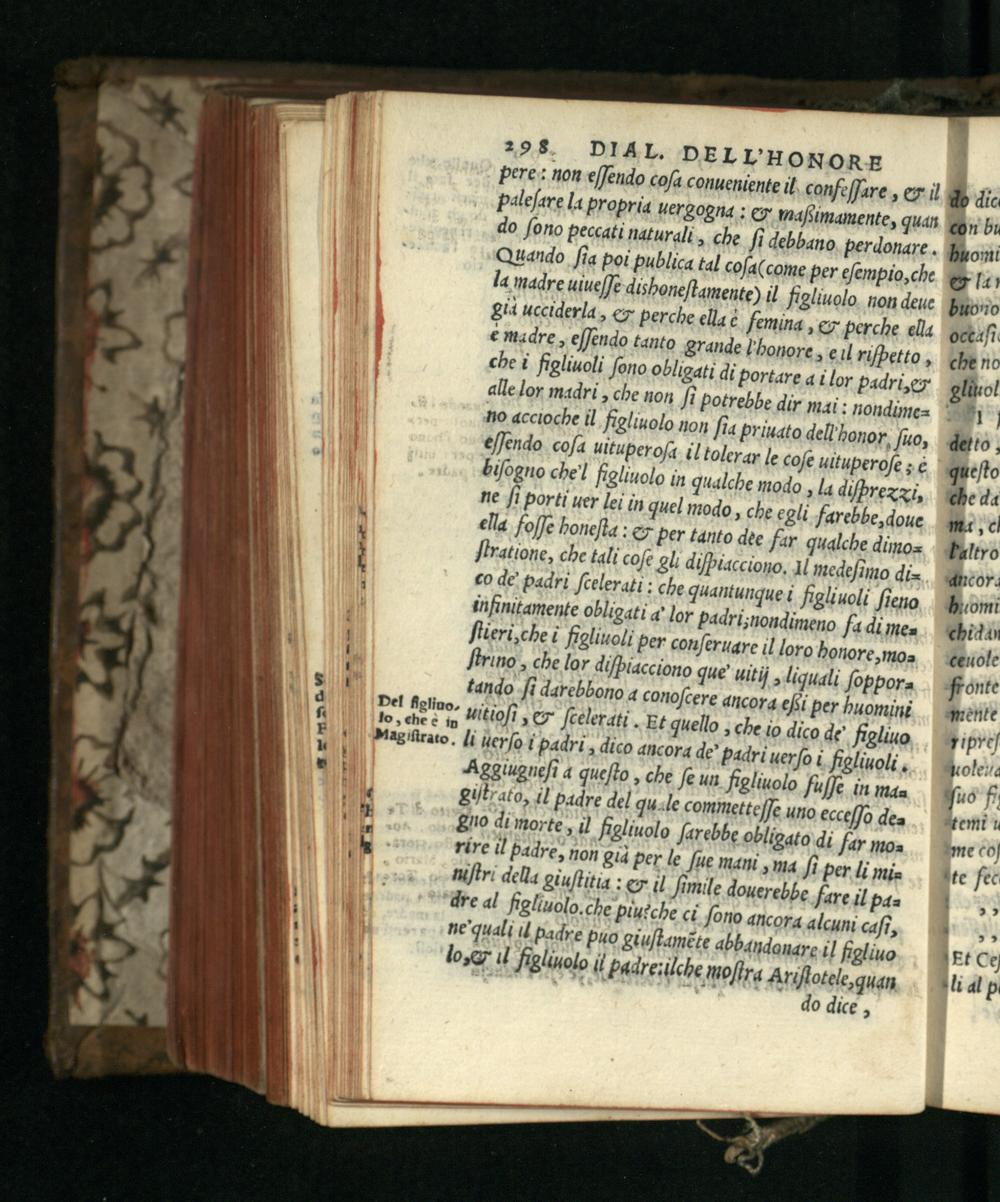 298 DIAL. DELL'HONORE
pere : non eſſendo coſa conueniente il confeſſare, & il
paleſare la propria uergogna : & maßimamente, quan
do ſono peccati naturali, che ſi debbano perdonare.
Quando ſia poi publica tal coſa(come per eſempio,che
la madre uiueſſe dishoneſtamente) il figliuolo non deue
già ucciderla, & perche ella è femina, & perche ella
è madre, eſſendo tanto grande l'honore, e il riſpetto,
che i figliuoli ſono obligati di portare a i lor padri,&
alle lor madri, che non ſi potrebbe dir mai : nondime=
no accioche il figliuolo non ſia priuato dell'honor ſuo,
eſſendo coſa uituperoſa il tolerar le coſe uituperoſe ; è
biſogno che'l figliuolo in qualche modo, la diſprezzi,
ne ſi porti uer lei in quel modo, che egli farebbe,doue
ella foſſe honeſta : & per tanto dèe far qualche dimo=
ſtratione, che tali coſe gli diſpiacciono. Il medeſimo di=
co de' padri ſcelerati : che quantunque i figliuoli ſieno
infinitamente obligati a' lor padri;nondimeno fa di me=
ſtieri,che i figliuoli per conſeruare il loro honore,mo=
ſtrino, che lor diſpiacciono que' uitij, liquali ſoppor=
tando ſi darebbono a conoſcere ancora eßi per huomini
uitioſi, & ſcelerati. Et quello, che io dico de' figliuo
li uerſo i padri, dico ancora de' padri uerſo i figliuoli.
Aggiugneſi a queſto, che ſe un figliuolo fuſſe in ma=
giſtrato, il padre del quale commetteſſe uno ecceſſo de=
gno di morte, il figliuolo ſarebbe obligato di far mo=
rire il padre, non già per le ſue mani, ma ſi per li mi=
niſtri della giuſtitia : & il ſimile douerebbe fare il pa=
dre al figliuolo.che piu?che ci ſono ancora alcuni caſi,
ne'quali il padre puo giuſtamẽte abbandonare il figliuo
lo,& il figliuolo il padre:ilche moſtra Ariſtotele,quan
do dice,
Del figliuo-
lo, che è in
Magiſtrato.
do dice
con bu
huomi
& la
buono
occaſi
che no
gliuol
I
detto,
queſto
che da
ma, ch
l'altro
ancora
huomi
chidan
ceuole
fronte
mente
ripreſ
uoleua
ſuo fig
temi u
me coſ
te fec
,,
,,
Et Ceſ
li al p